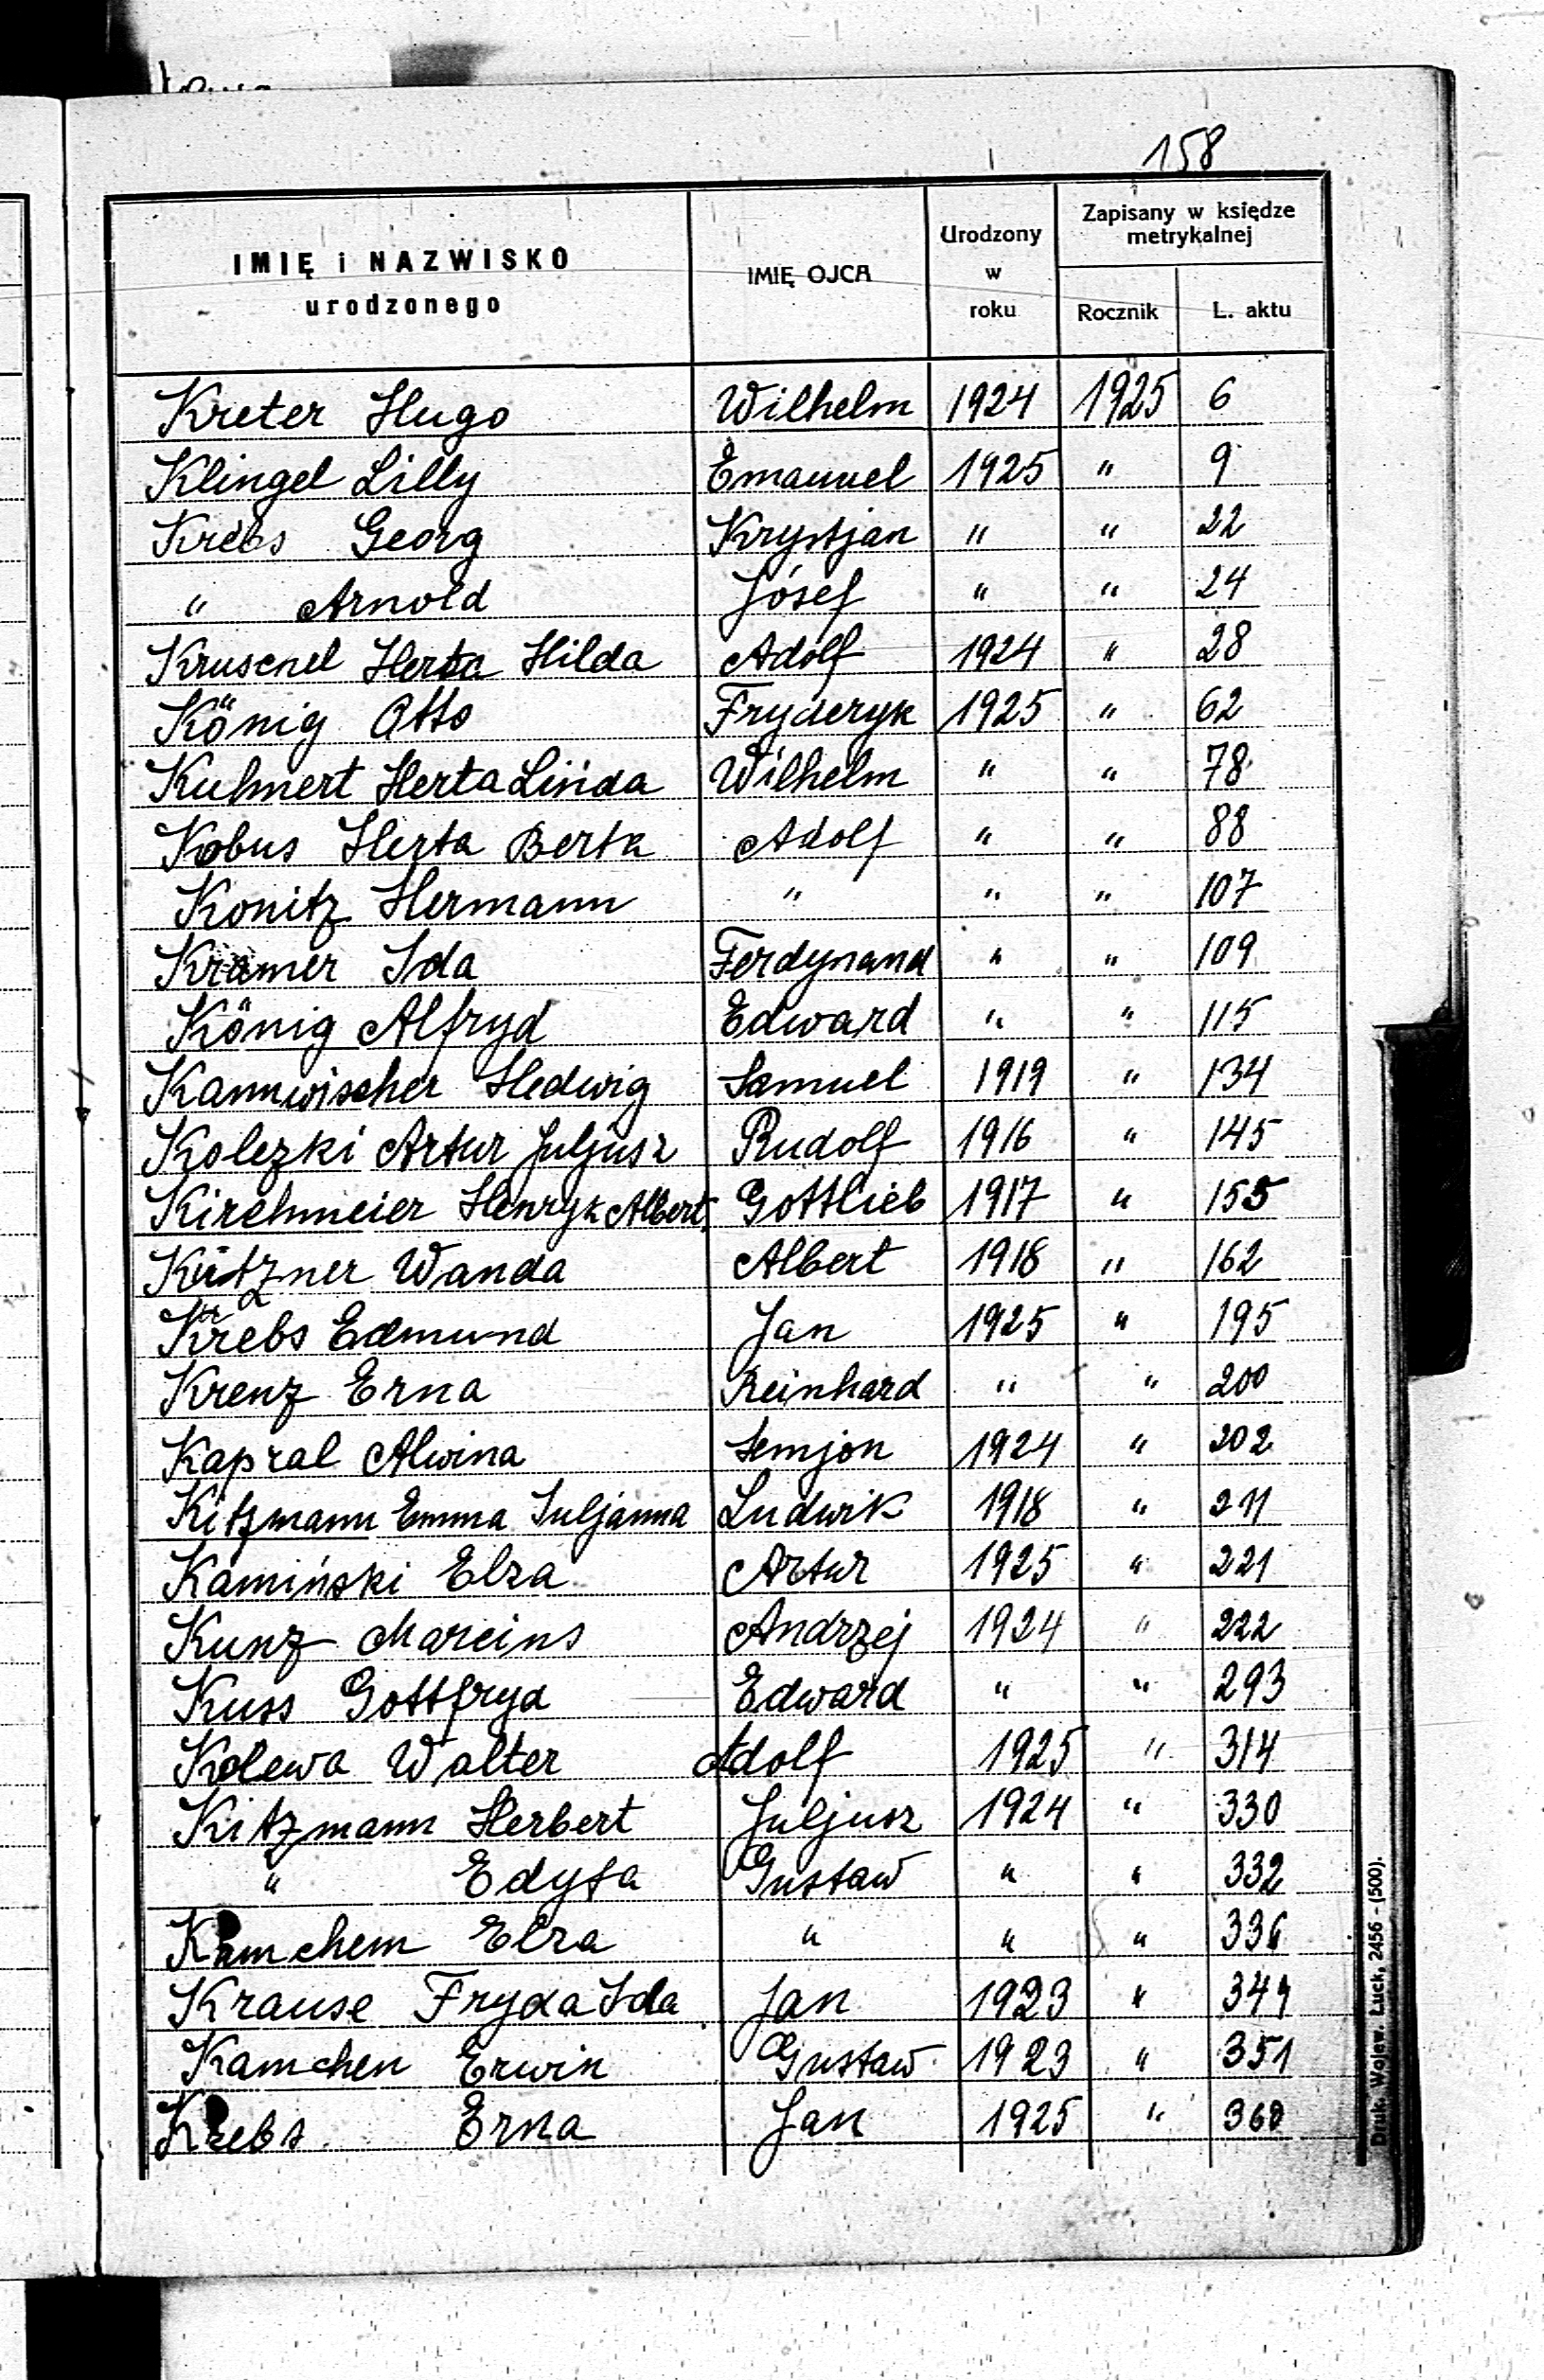 158
IMIĘ i NAZWISKO urodzonego IMIĘ OJCA Urodzony w roku Zapisany w księdze metrykalnej Rocznik L. aktu
Kreter Hugo Wilhelm 1924 1925 6
Klingel Lilly Emanuel 1925 " 9
Krebs Georg Krystjan " " 22
" Arnold Józef " " 24
Kruschel Herta Hilda Adolf 1924 " 28
König Otto Fryderyk 1925 " 62
Kuhnert Herta Linda Wilhelm " " 78
Kobus Herta Berta Adolf " " 88
Konitz Hermann " " " 107
Kramer Ida Ferdynand " " 109
König Alfryd Edward " " 115
Kannwischer Hedwig Samuel 1919 " 134
Kolezki Artur Juljusz Rudolf 1916 " 145
Kirchmeier Henryk Albert Gottlieb 1917 " 155
Kitzner Wanda Albert 1918 " 162
Krebs Edmund Jan 1925 " 195
Krenz Erna Reinhard " " 200
Kapral Alwina Semjon 1924 " 202
Kitzmann Emma Juljanna Ludwik 1918 " 211
Kamiński Elza Artur 1925 " 221
Kunz Mareins Andrzej 1924 " 222
Kuss Gottfryd Edward " " 293
Kolewa Walter Adolf 1925 " 314
Kitzmann Herbert Juljusz 1924 " 330
" Edyta Gustaw " " 332
Kamchem Elza " " " 336
Krause Fryda Ida Jan 1923 " 344
Kamchen Erwin Gustaw 1923 " 351
Krebs Erna Jan 1925 " 368
Druk. Wojew. Łuck, 2456 - (500).